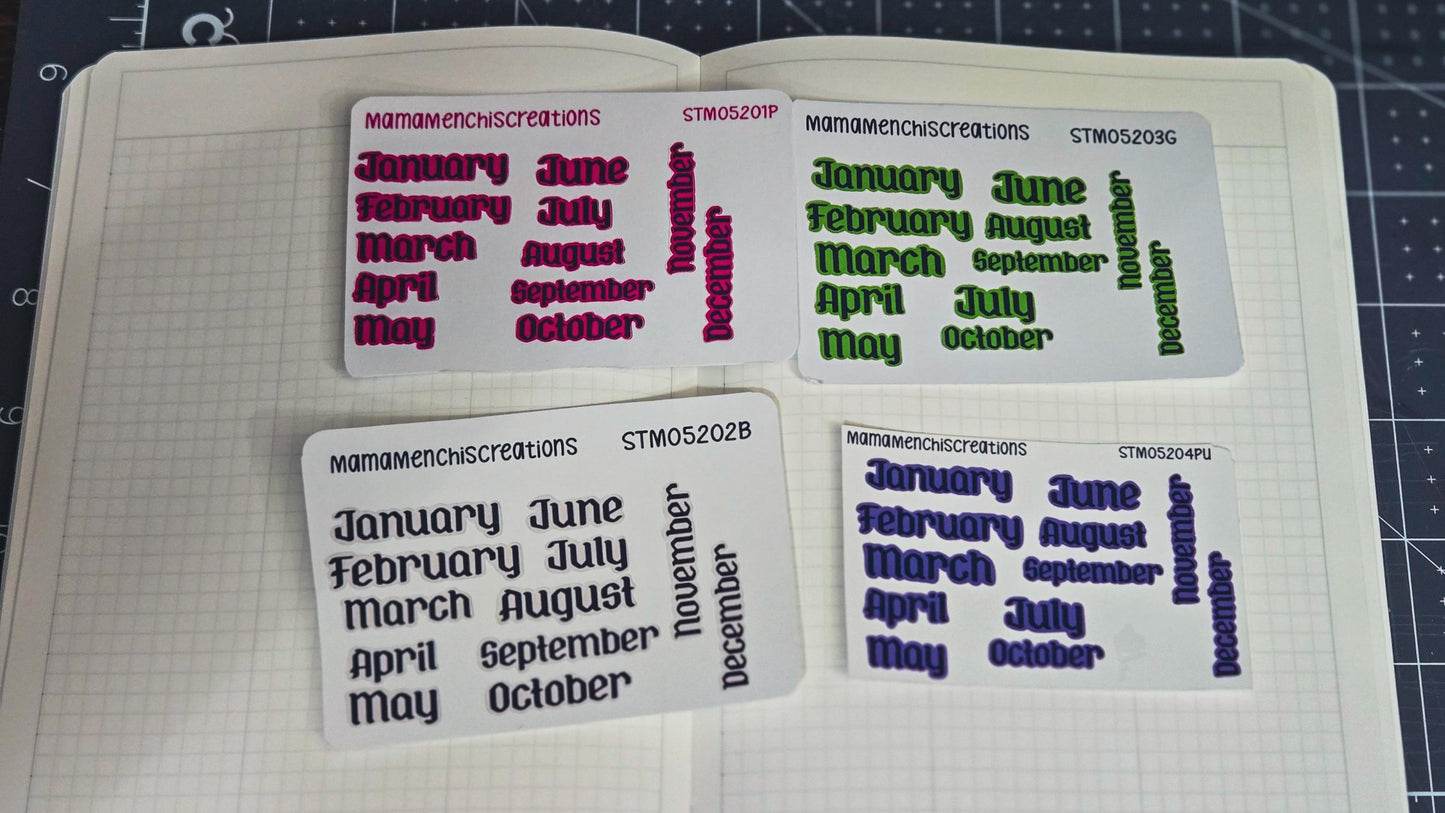 MamaMenchisCreations STM05201P
January June
February July
March August
April September
May October
November
December
MamaMenchisCreations STM05203G
January June
February August
March September
April July
May October
November
December
MamaMenchisCreations STM05202B
January June
February July
March August
April September
May October
November
December
MamaMenchisCreations STM05204PU
January June
February August
March September
April July
May October
November
December
6
8